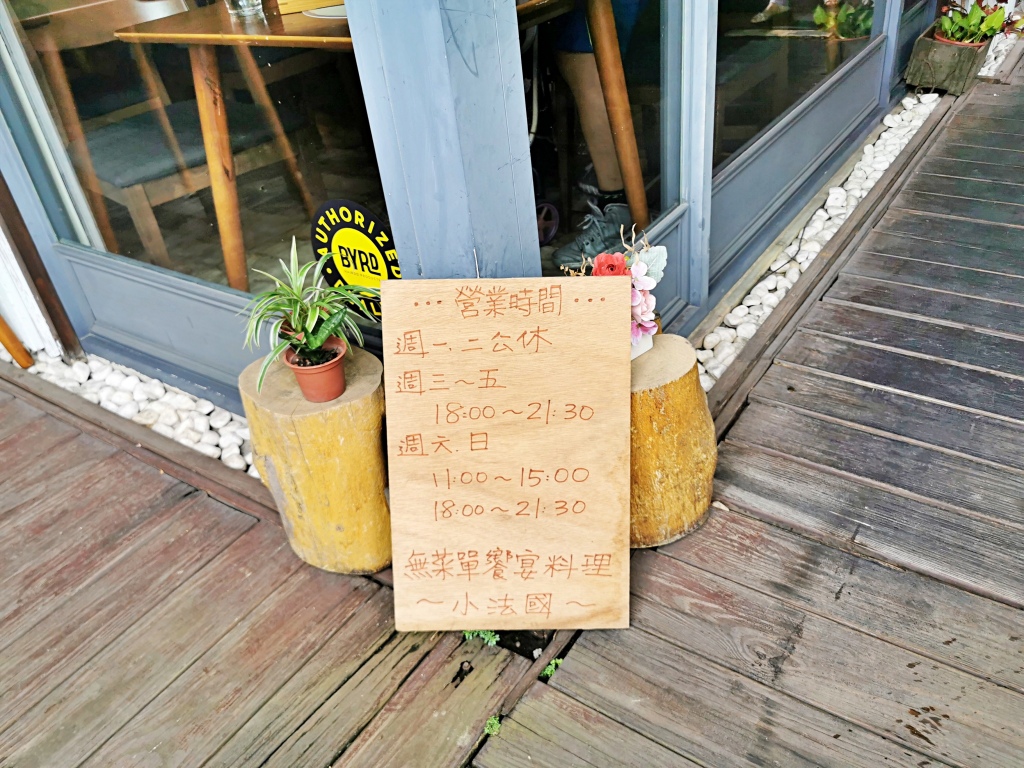 AUTHORIZED
BYRD
··· 營業時間 ···
週一、二公休
週三～五
18:00～21:30
週六.日
11:00～15:00
18:00～21:30
無菜單饗宴料理
～小法國～